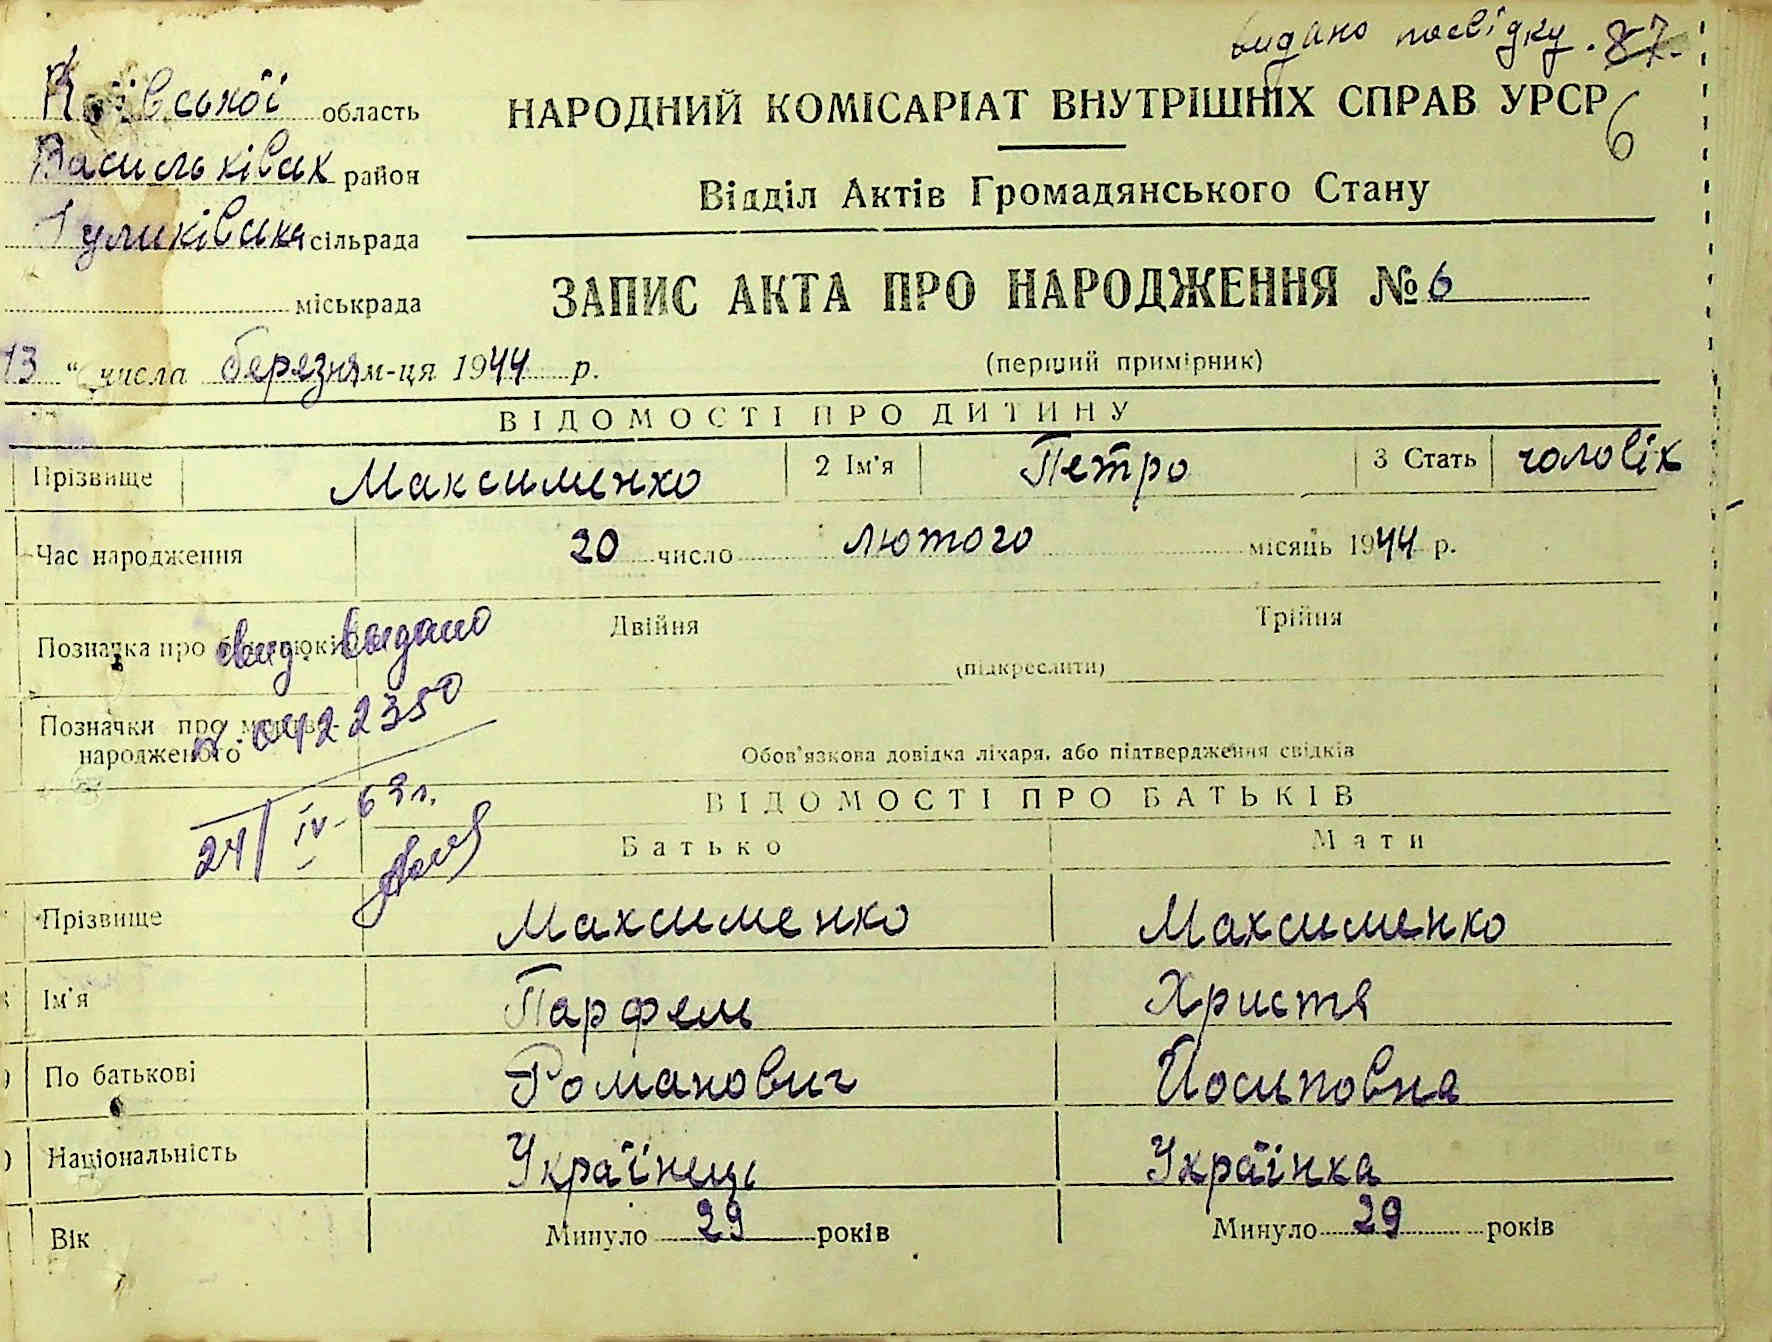 видано посвідку. 87.
Київської область
Васильківськ район
сільрада
міськрада
НАРОДНИЙ КОМІСАРІАТ ВНУТРІШНІХ СПРАВ УРСР
6
Відділ Актів Громадянського Стану
ЗАПИС АКТА ПРО НАРОДЖЕННЯ № 6
(перший примірник)
13 " числа березня м-ця 1944 р.
ВІДОМОСТІ ПРО ДИТИНУ
Прізвище Максименко 2 Ім'я Петро 3 Стать чоловік
Час народження 20 число лютого місяць 1944 р.
Позначка про Двійня Трійня
(підкреслити)
свид. выдано
0422350
Позначки про мертво-
народженого
Обов'язкова довідка лікаря, або підтвердження свідків
24/IV-63г.
ВІДОМОСТІ ПРО БАТЬКІВ
Батько Мати
Прізвище Максименко Максименко
Ім'я Парфель Христя
По батькові Романович Йосиповна
Національність Українець Українка
Вік Минуло 29 років Минуло 29 років